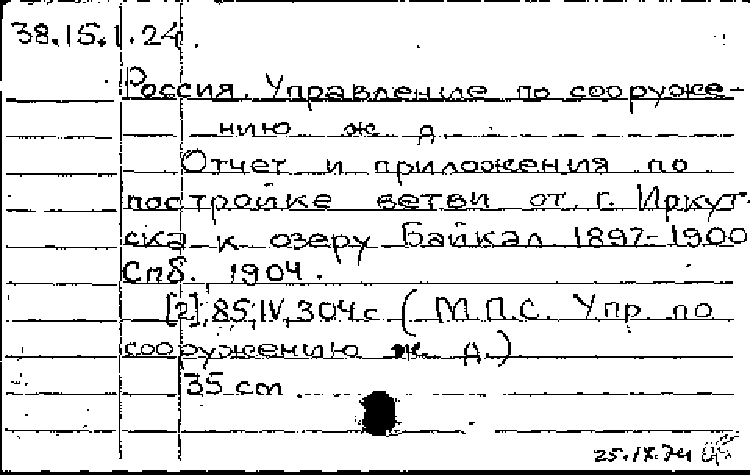 38.15.1.24.
Россия. Управление по сооруже-
нию ж. д.
Отчет и приложения по
постройке ветви от г. Иркут-
ска к озеру Байкал 1897-1900
Спб. 1904.
[2], 85, IV, 304 с. (М.П.С. Упр. по
сооружению ж. д.)
35 cm
25.IX.74